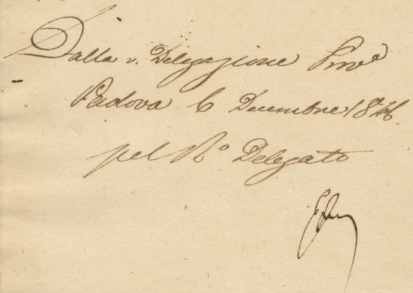 Dalla r. Delegazione Prov.e
Padova 6 Decembre 1846
pel R.o Delegato